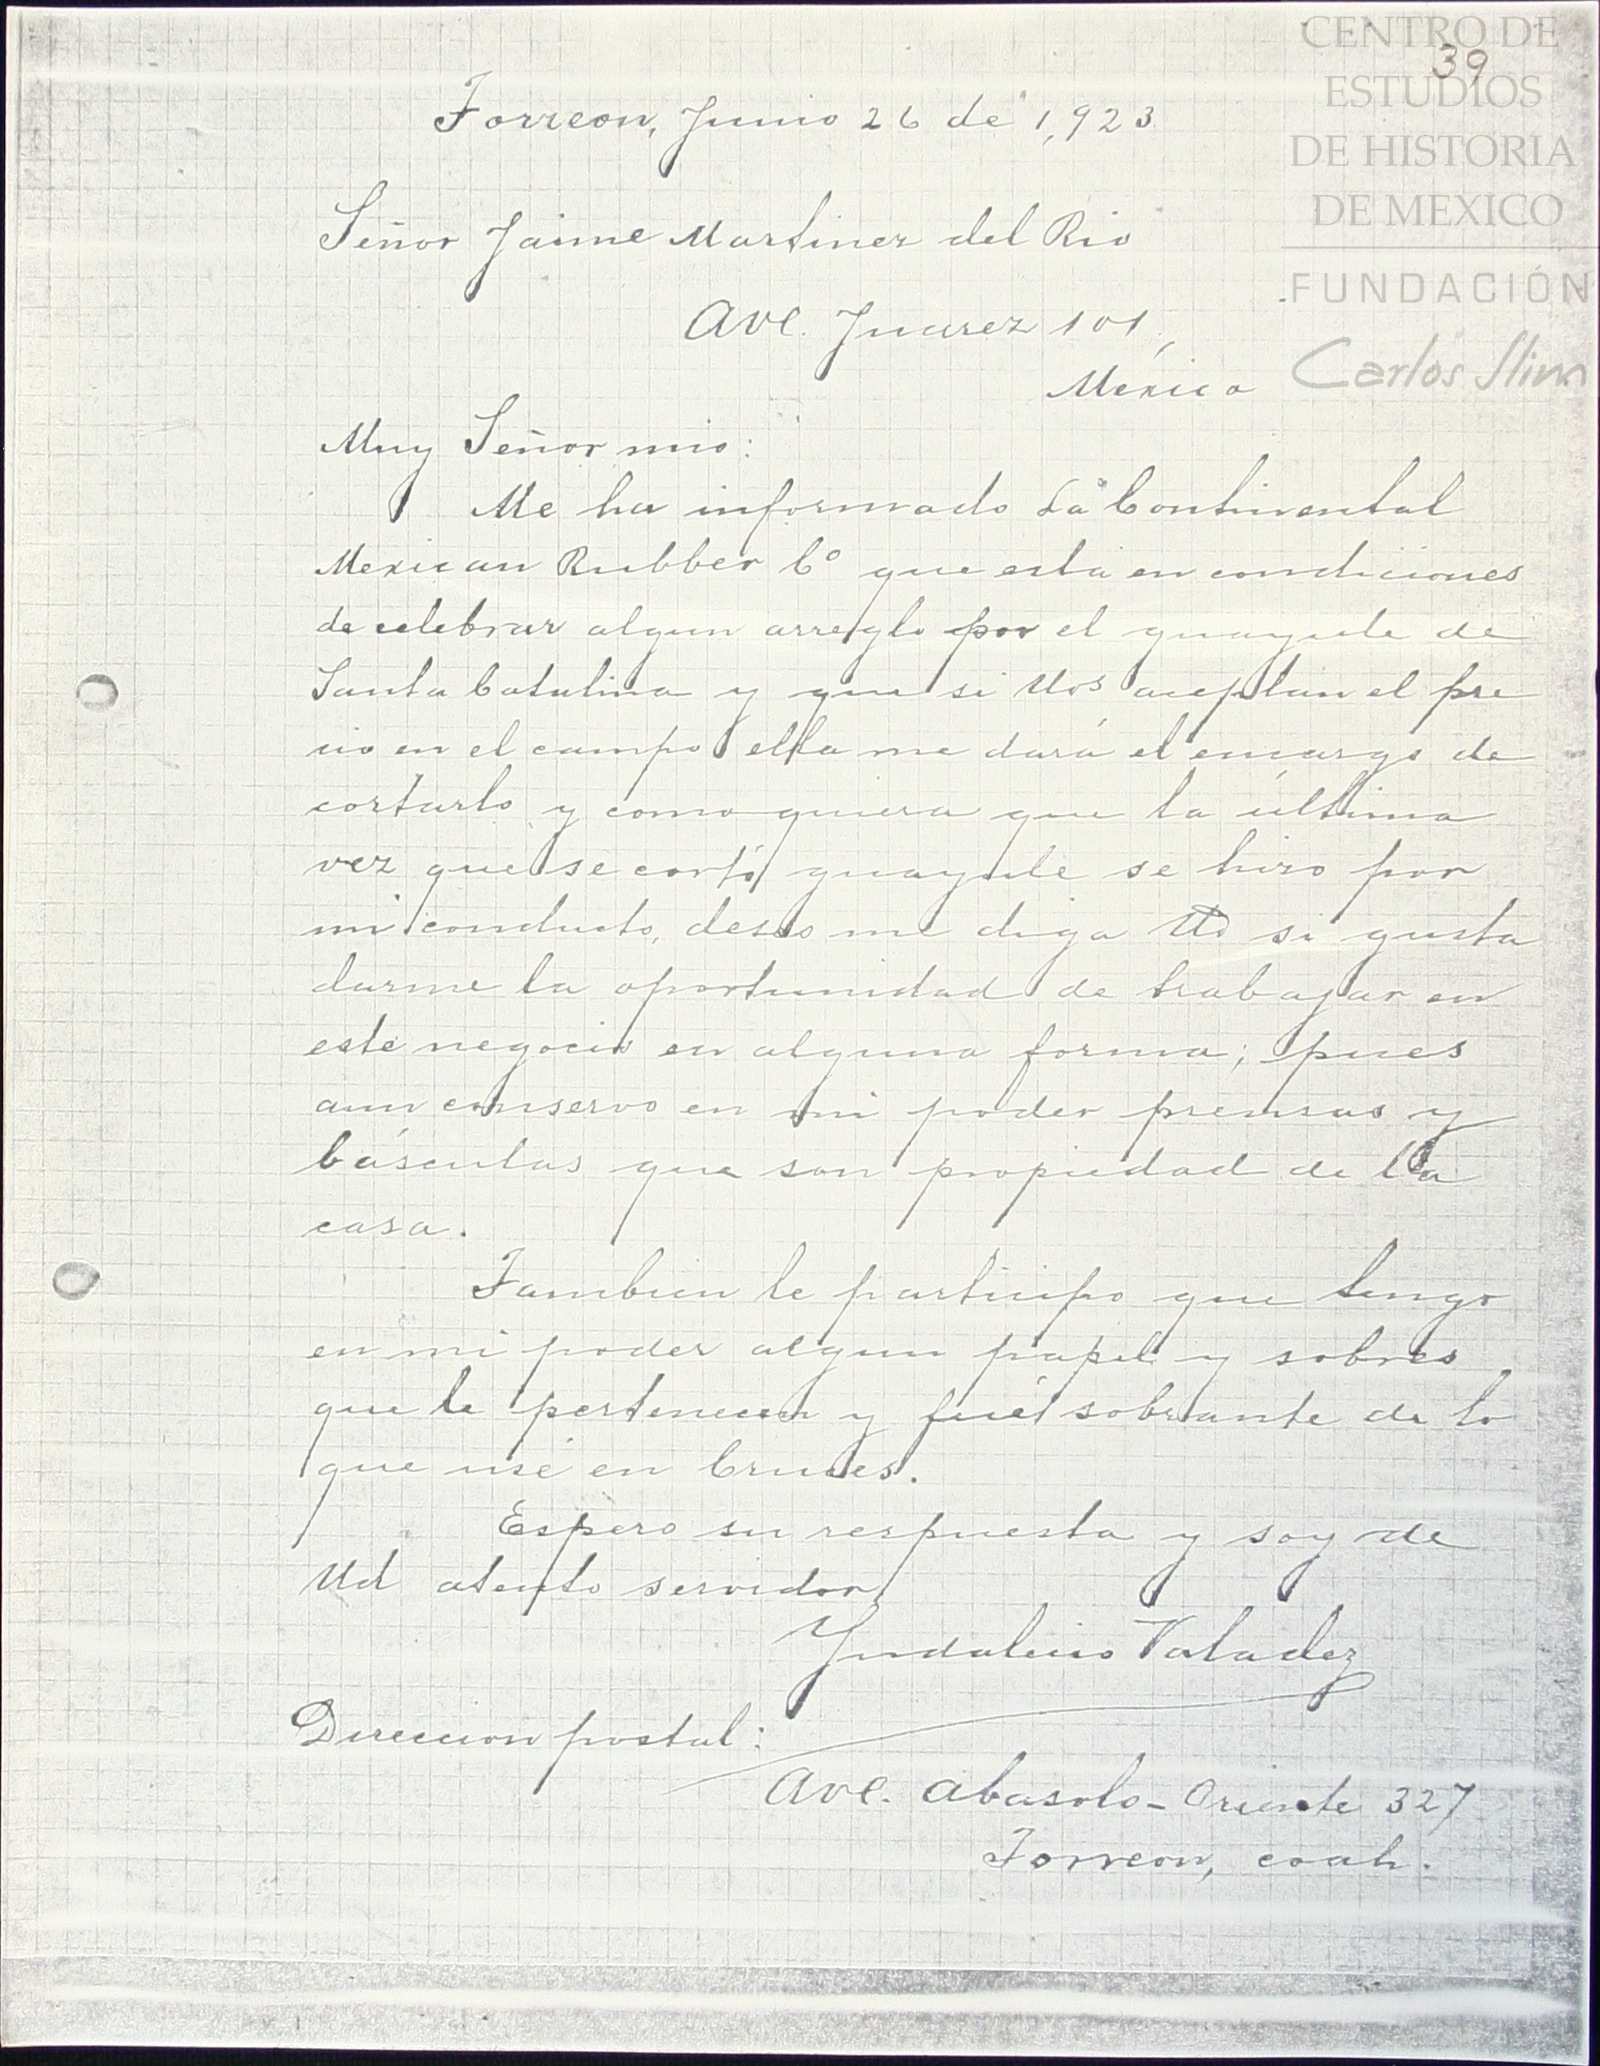 CENTRO DE
ESTUDIOS
DE HISTORIA
DE MEXICO
FUNDACIÓN
Carlos Slim
39
Torreon, Junio 26 de 1,923
Señor Jaime Martinez del Rio
Ave. Juarez 101,
Mexico
Muy Señor mio:
Me ha informado La Continental
Mexican Rubber Cº que esta en condiciones
de celebrar algun arreglo por el guayule de
Santa Catalina y que si Uds aceptan el pre
cio en el campo ella me dará el encargo de
cortarlo y como quiera que la última
vez que se cortó guayule se hizo por
mi conducto, deseo me diga Ud si gusta
darme la oportunidad de trabajar en
este negocio en alguna forma; pues
aun conservo en mi poder prensas y
básculas que son propiedad de la
casa.
Tambien le participo que tengo
en mi poder algun papel y sobres
que le pertenecen y fué sobrante de lo
que usé en Cruces.
Espero su respuesta y soy de
Ud atento servidor
Yndalecio Valadez
Direccion postal:
Ave. Abasolo - Oriente 327
Torreon, coah.